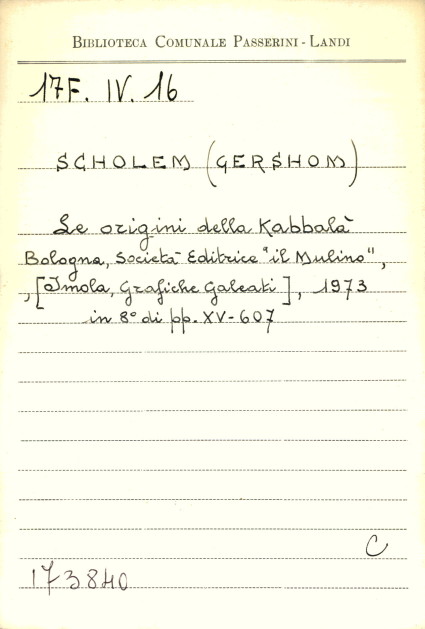 BIBLIOTECA COMUNALE PASSERINI - LANDI
17F. IV. 16
SCHOLEM (GERSHOM)
Le origini della Kabbalà
Bologna, Società Editrice "il Mulino",
,[Imola, Grafiche Galeati], 1973
in 8° di pp. XV-607
C
173840